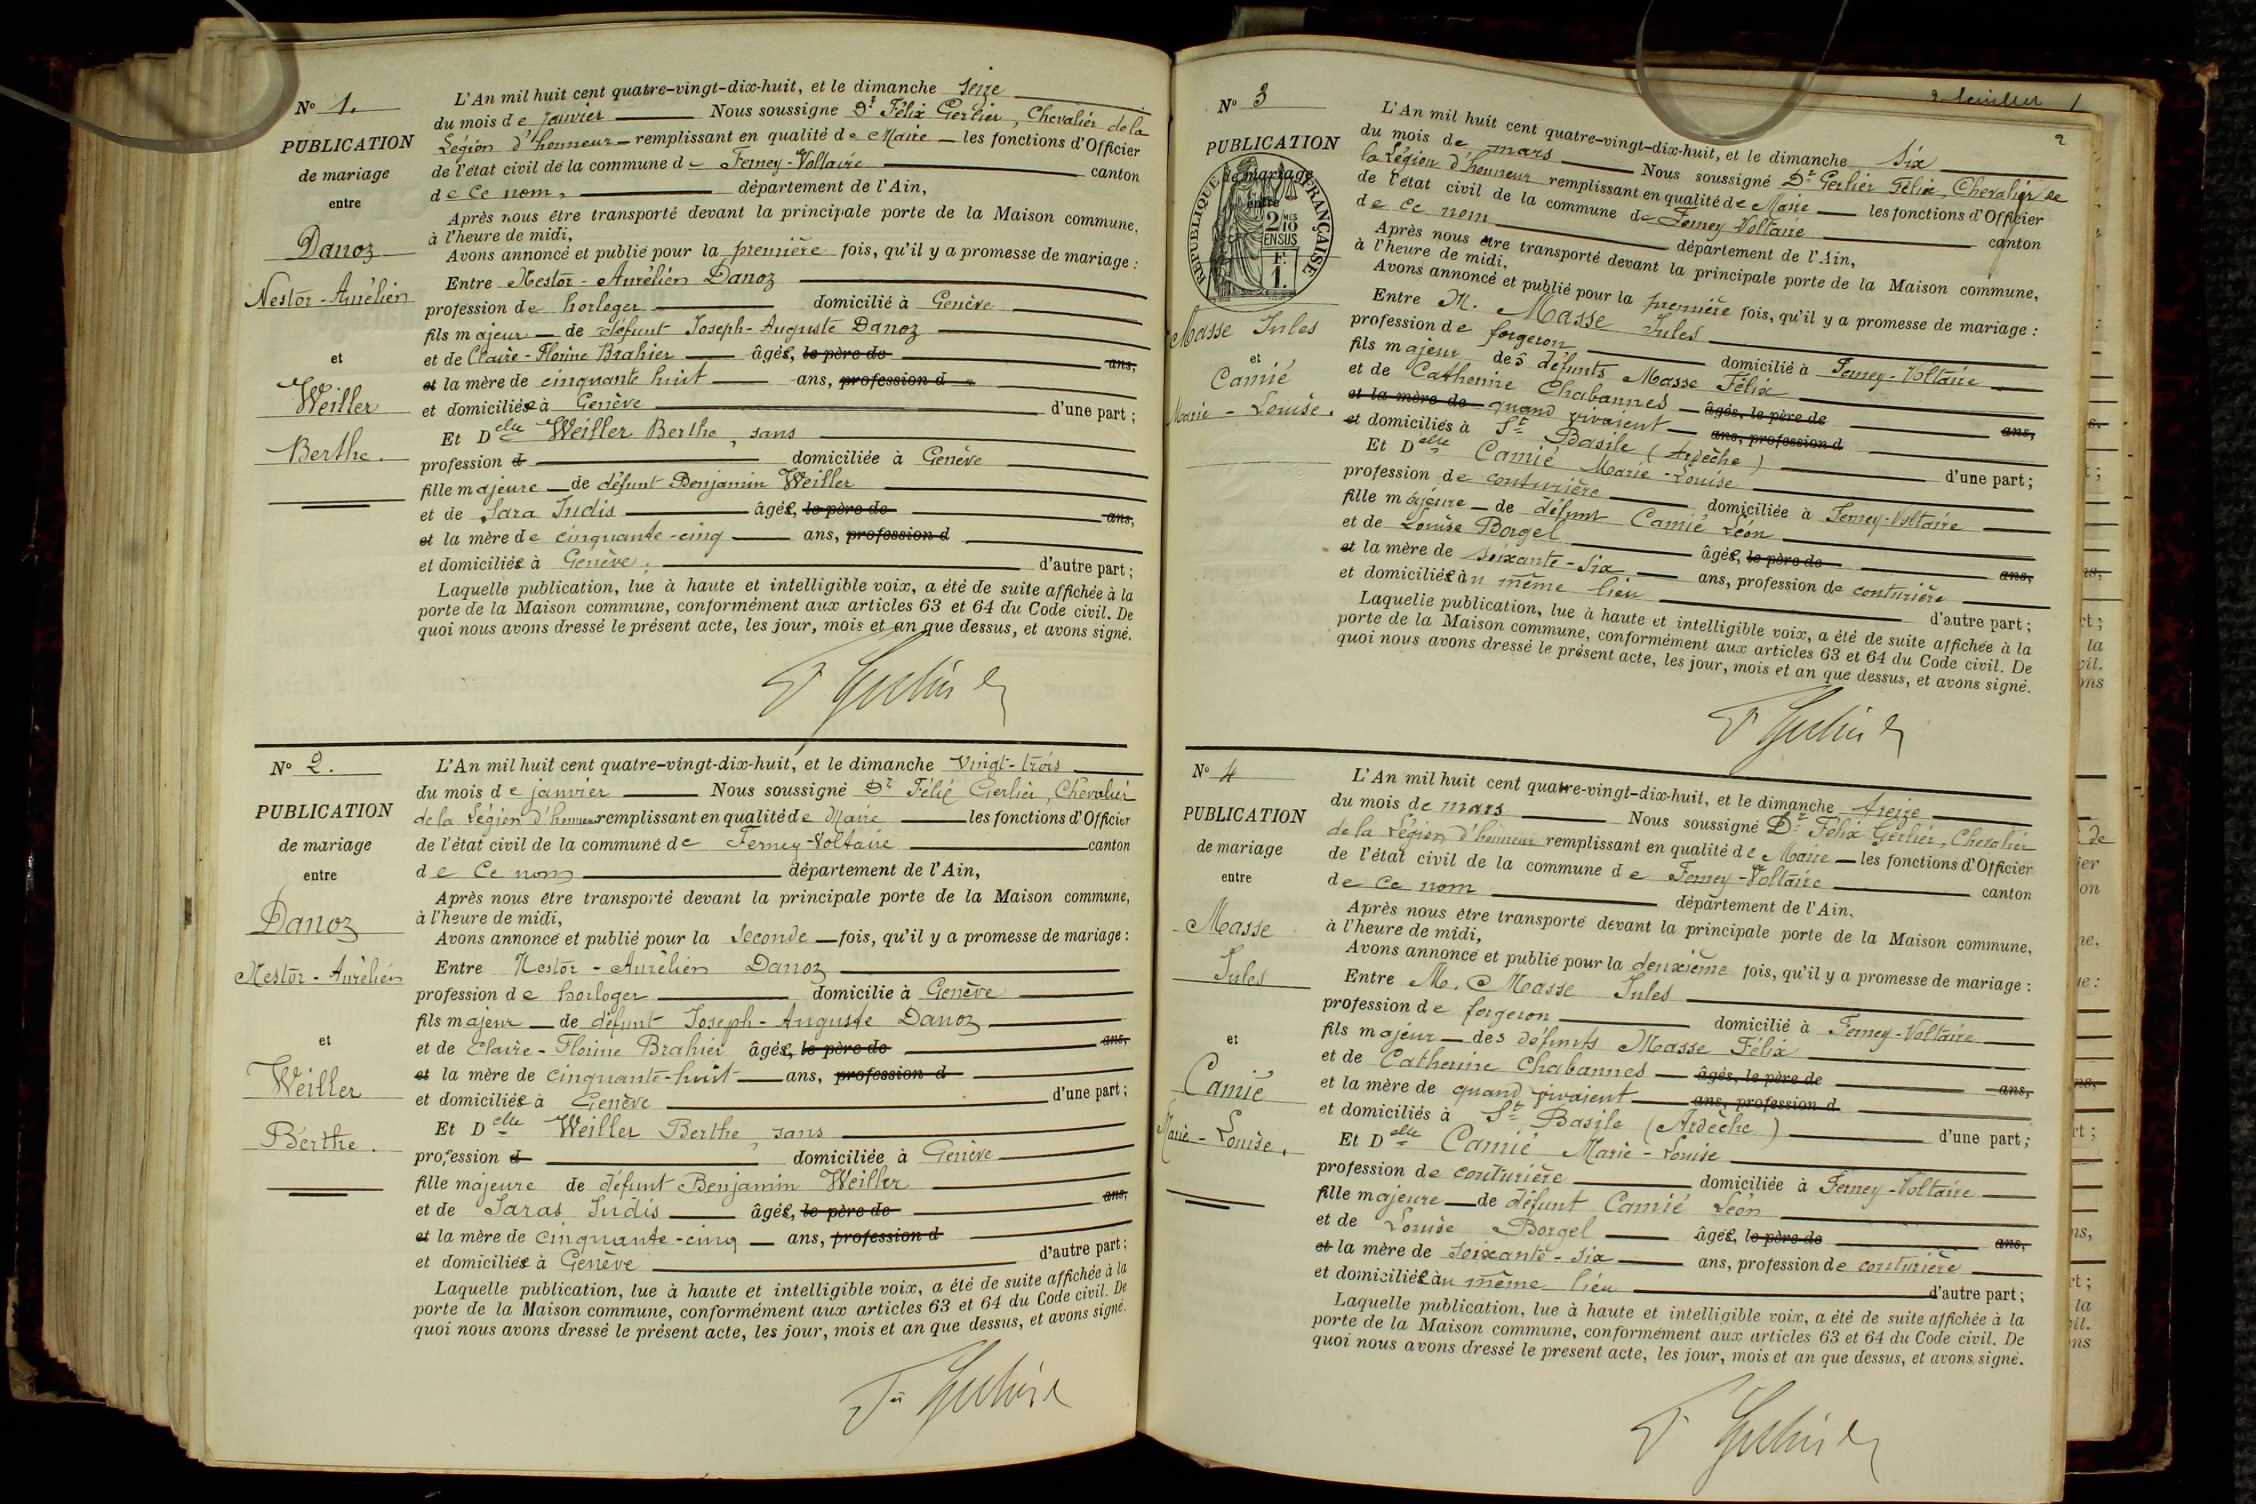 N° 1.
PUBLICATION
de mariage
entre
Danoz
Nestor-Aurélien
et
Weiller
Berthe.
L'An mil huit cent quatre-vingt-dix-huit, et le dimanche seize
du mois de janvier Nous soussigné Dr Félix Gerlier, Chevalier de la
Légion d'honneur remplissant en qualité de Maire les fonctions d'Officier
de l'état civil de la commune de Ferney-Voltaire canton
de ce nom, département de l'Ain,
Après nous être transporté devant la principale porte de la Maison commune,
à l'heure de midi,
Avons annoncé et publié pour la première fois, qu'il y a promesse de mariage :
Entre Nestor-Aurélien Danoz
profession de horloger domicilié à Genève
fils majeur de défunt Joseph-Auguste Danoz
et de Claire-Florine Brahier âgés, le père de ans,
et la mère de cinquante huit ans, profession d
et domiciliés à Genève d'une part ;
Et Delle Weiller Berthe, sans
profession d domiciliée à Genève
fille majeure de défunt Benjamin Weiller
et de Sara Judis âgés, le père de ans,
et la mère de cinquante-cinq ans, profession d
et domiciliés à Genève. d'autre part ;
Laquelle publication, lue à haute et intelligible voix, a été de suite affichée à la
porte de la Maison commune, conformément aux articles 63 et 64 du Code civil. De
quoi nous avons dressé le présent acte, les jour, mois et an que dessus, et avons signé.
N° 2.
PUBLICATION
de mariage
entre
Danoz
Nestor-Aurélien
et
Weiller
Berthe.
L'An mil huit cent quatre-vingt-dix-huit, et le dimanche vingt-trois
du mois de janvier Nous soussigné Dr Félix Gerlier, Chevalier
de la Légion d'honneur remplissant en qualité de Maire les fonctions d'Officier
de l'état civil de la commune de Ferney-Voltaire canton
de ce nom département de l'Ain,
Après nous être transporté devant la principale porte de la Maison commune,
à l'heure de midi,
Avons annoncé et publié pour la seconde fois, qu'il y a promesse de mariage :
Entre Nestor-Aurélien Danoz
profession de horloger domicilié à Genève
fils majeur de défunt Joseph-Auguste Danoz
et de Claire-Florine Brahier âgés, le père de ans,
et la mère de cinquante-huit ans, profession d
et domiciliés à Genève d'une part ;
Et Delle Weiller Berthe, sans
profession d domiciliée à Genève
fille majeure de défunt Benjamin Weiller
et de Saras Judis âgés, le père de ans,
et la mère de cinquante-cinq ans, profession d
et domiciliés à Genève d'autre part ;
Laquelle publication, lue à haute et intelligible voix, a été de suite affichée à la
porte de la Maison commune, conformément aux articles 63 et 64 du Code civil. De
quoi nous avons dressé le présent acte, les jour, mois et an que dessus, et avons signé.
2
N° 3
PUBLICATION
de mariage
entre
RÉPUBLIQUE FRANÇAISE
2 MES 10
EN SUS
F.
1.
Masse Jules
et
Camié
Marie-Louise.
L'An mil huit cent quatre-vingt-dix-huit, et le dimanche six
du mois de mars Nous soussigné Dr Gerlier Félix, Chevalier de
la Légion d'honneur remplissant en qualité de Maire les fonctions d'Officier
de l'état civil de la commune de Ferney Voltaire canton
de ce nom département de l'Ain,
Après nous être transporté devant la principale porte de la Maison commune,
à l'heure de midi,
Avons annoncé et publié pour la première fois, qu'il y a promesse de mariage :
Entre M. Masse Jules
profession de forgeron domicilié à Ferney-Voltaire
fils majeur des défunts Masse Félix
et de Catherine Chabannes âgés, le père de ans,
et la mère de quand vivaient ans, profession d
et domiciliés à St Basile (Ardèche) d'une part ;
Et Delle Camié Marie-Louise
profession de couturière domiciliée à Ferney-Voltaire
fille majeure de défunt Camié Léon
et de Louise Borgel âgés, le père de ans,
et la mère de soixante-six ans, profession de couturière
et domiciliés au même lieu d'autre part ;
Laquelle publication, lue à haute et intelligible voix, a été de suite affichée à la
porte de la Maison commune, conformément aux articles 63 et 64 du Code civil. De
quoi nous avons dressé le présent acte, les jour, mois et an que dessus, et avons signé.
N° 4
PUBLICATION
de mariage
entre
Masse
Jules
et
Camié
Marie-Louise.
L'An mil huit cent quatre-vingt-dix-huit, et le dimanche treize
du mois de mars Nous soussigné Dr Félix Gerlier, Chevalier
de la Légion d'honneur remplissant en qualité de Maire les fonctions d'Officier
de l'état civil de la commune de Ferney-Voltaire canton
de ce nom département de l'Ain,
Après nous être transporté devant la principale porte de la Maison commune,
à l'heure de midi,
Avons annoncé et publié pour la deuxième fois, qu'il y a promesse de mariage :
Entre M. Masse Jules
profession de forgeron domicilié à Ferney-Voltaire
fils majeur des défunts Masse Félix
et de Catherine Chabannes âgés, le père de ans,
et la mère de quand vivaient ans, profession d
et domiciliés à St Basile (Ardèche) d'une part ;
Et Delle Camié Marie-Louise
profession de couturière domiciliée à Ferney-Voltaire
fille majeure de défunt Camié Léon
et de Louise Borgel âgés, le père de ans,
et la mère de soixante-six ans, profession de couturière
et domiciliés au même lieu d'autre part ;
Laquelle publication, lue à haute et intelligible voix, a été de suite affichée à la
porte de la Maison commune, conformément aux articles 63 et 64 du Code civil. De
quoi nous avons dressé le présent acte, les jour, mois et an que dessus, et avons signé.